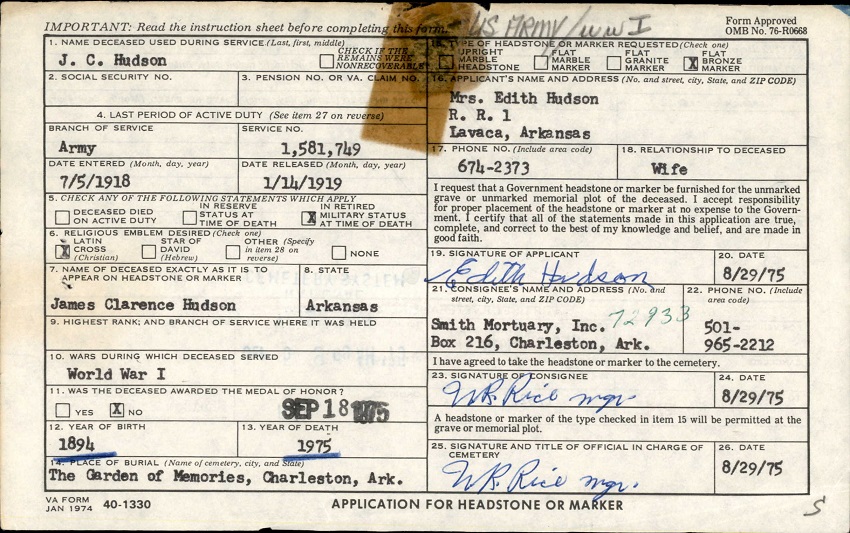 IMPORTANT: Read the instruction sheet before completing this form.
US ARMY/WW I
Form Approved
OMB No. 76-R0668
1. NAME DECEASED USED DURING SERVICE (Last, first, middle)
J. C. Hudson
CHECK IF THE REMAINS WERE NONRECOVERABLE
2. SOCIAL SECURITY NO.
3. PENSION NO. OR VA. CLAIM NO.
4. LAST PERIOD OF ACTIVE DUTY (See item 27 on reverse)
BRANCH OF SERVICE
Army
SERVICE NO.
1,581,749
DATE ENTERED (Month, day, year)
7/5/1918
DATE RELEASED (Month, day, year)
1/14/1919
5. CHECK ANY OF THE FOLLOWING STATEMENTS WHICH APPLY
DECEASED DIED ON ACTIVE DUTY
IN RESERVE STATUS AT TIME OF DEATH
X IN RETIRED MILITARY STATUS AT TIME OF DEATH
6. RELIGIOUS EMBLEM DESIRED (Check one)
X LATIN CROSS (Christian)
STAR OF DAVID (Hebrew)
OTHER (Specify in item 28 on reverse)
NONE
7. NAME OF DECEASED EXACTLY AS IT IS TO APPEAR ON HEADSTONE OR MARKER
James Clarence Hudson
8. STATE
Arkansas
9. HIGHEST RANK; AND BRANCH OF SERVICE WHERE IT WAS HELD
10. WARS DURING WHICH DECEASED SERVED
World War I
11. WAS THE DECEASED AWARDED THE MEDAL OF HONOR?
YES
X NO
SEP 18 1975
12. YEAR OF BIRTH
1894
13. YEAR OF DEATH
1975
14. PLACE OF BURIAL (Name of cemetery, city, and State)
The Garden of Memories, Charleston, Ark.
15. TYPE OF HEADSTONE OR MARKER REQUESTED (Check one)
UPRIGHT MARBLE HEADSTONE
FLAT MARBLE MARKER
FLAT GRANITE MARKER
X FLAT BRONZE MARKER
16. APPLICANT'S NAME AND ADDRESS (No. and street, city, State, and ZIP CODE)
Mrs. Edith Hudson
R. R. 1
Lavaca, Arkansas
17. PHONE NO. (Include area code)
674-2373
18. RELATIONSHIP TO DECEASED
Wife
I request that a Government headstone or marker be furnished for the unmarked
grave or unmarked memorial plot of the deceased. I accept responsibility
for proper placement of the headstone or marker at no expense to the Govern-
ment. I certify that all of the statements made in this application are true,
complete, and correct to the best of my knowledge and belief, and are made in
good faith.
19. SIGNATURE OF APPLICANT
Edith Hudson
20. DATE
8/29/75
21. CONSIGNEE'S NAME AND ADDRESS (No. and street, city, State, and ZIP CODE)
Smith Mortuary, Inc. 72933
Box 216, Charleston, Ark.
22. PHONE NO. (Include area code)
501-
965-2212
I have agreed to take the headstone or marker to the cemetery.
23. SIGNATURE OF CONSIGNEE
W.R. Rice mgr.
24. DATE
8/29/75
A headstone or marker of the type checked in item 15 will be permitted at the
grave or memorial plot.
25. SIGNATURE AND TITLE OF OFFICIAL IN CHARGE OF CEMETERY
W.R. Rice mgr.
26. DATE
8/29/75
VA FORM
JAN 1974 40-1330
APPLICATION FOR HEADSTONE OR MARKER
S